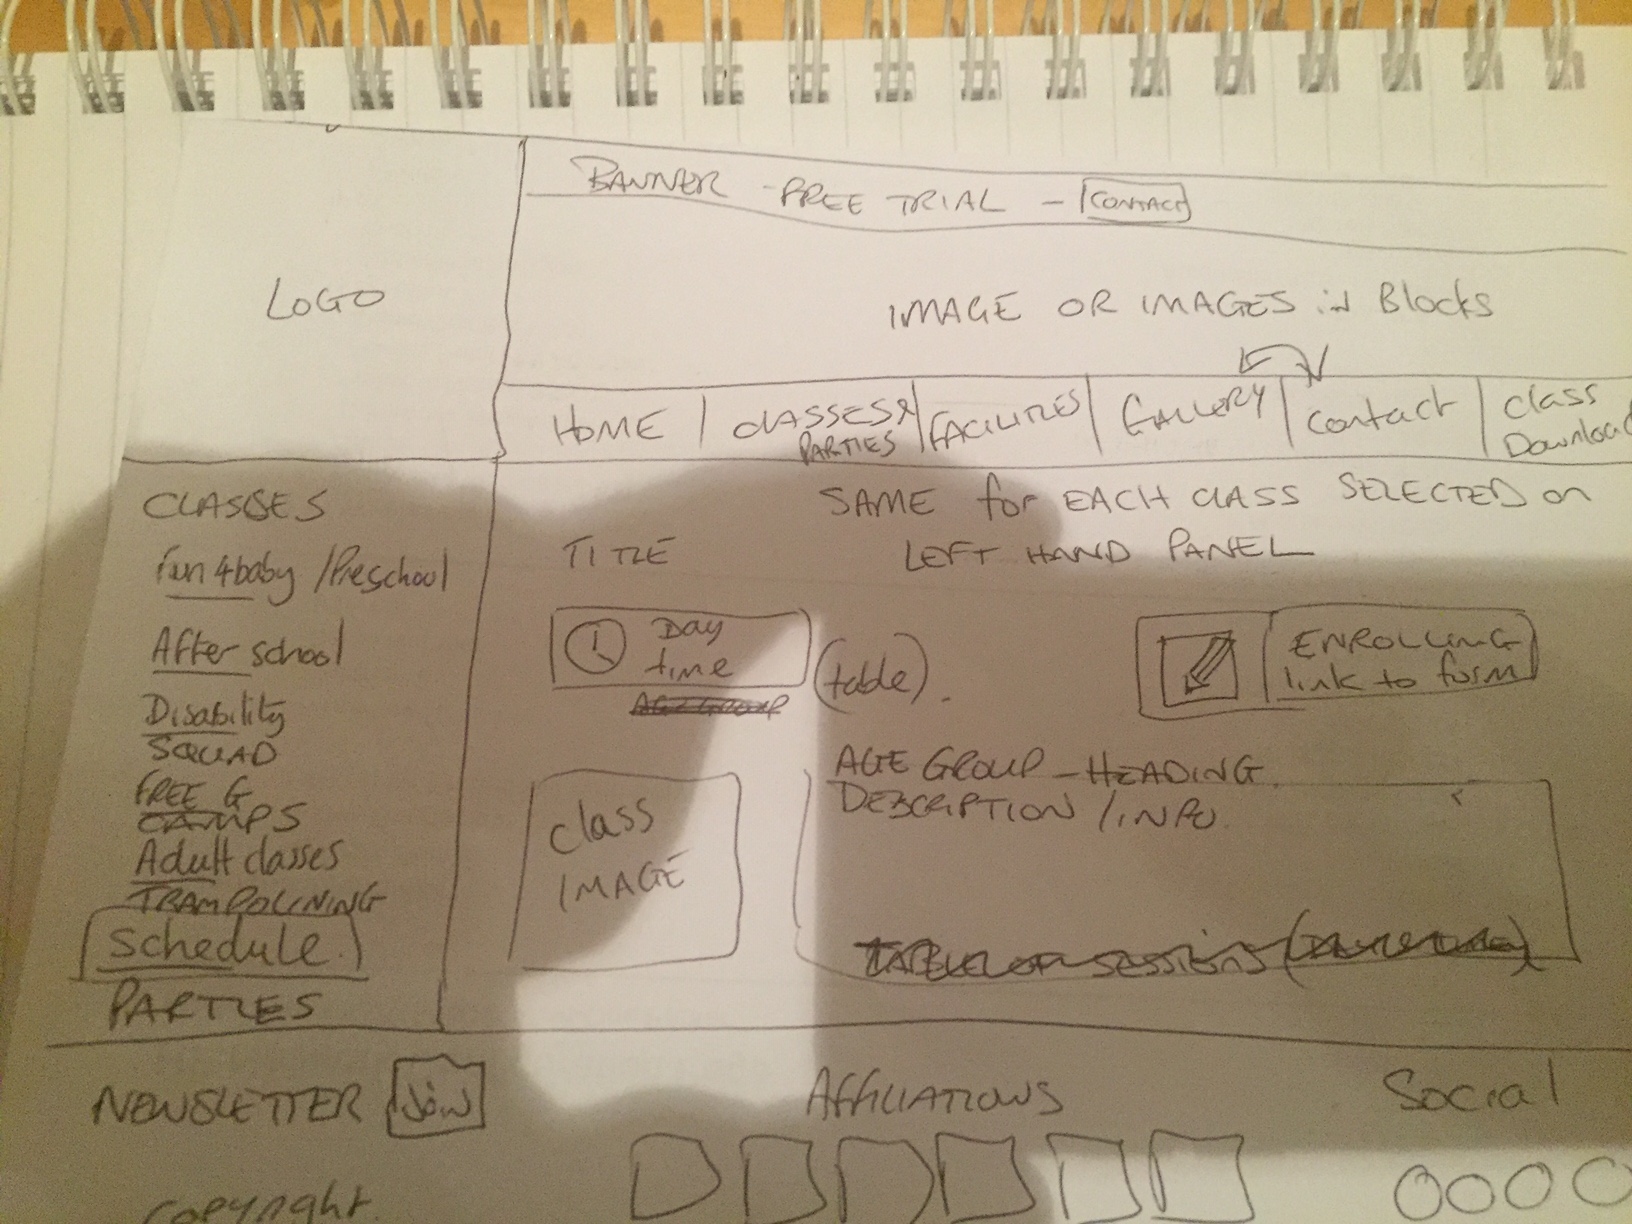 BANNER - FREE TRIAL - CONTACT
LOGO
IMAGE OR IMAGES in Blocks
HOME | CLASSES & PARTIES | FACILITIES | GALLERY | Contact | Class Download
CLASSES
Fun 4 baby / Preschool
After school
Disability
SQUAD
FREE G
CAMPS
Adult classes
TRAMPOLINING
Schedule.
PARTIES
SAME for EACH CLASS SELECTED on
LEFT HAND PANEL
TITLE
Day
time
(table).
AGE GROUP
ENROLLING
link to form
class
IMAGE
AGE GROUP - HEADING
DESCRIPTION / INFO.
NEWSLETTER Join
AFFILIATIONS
Social
copyright.